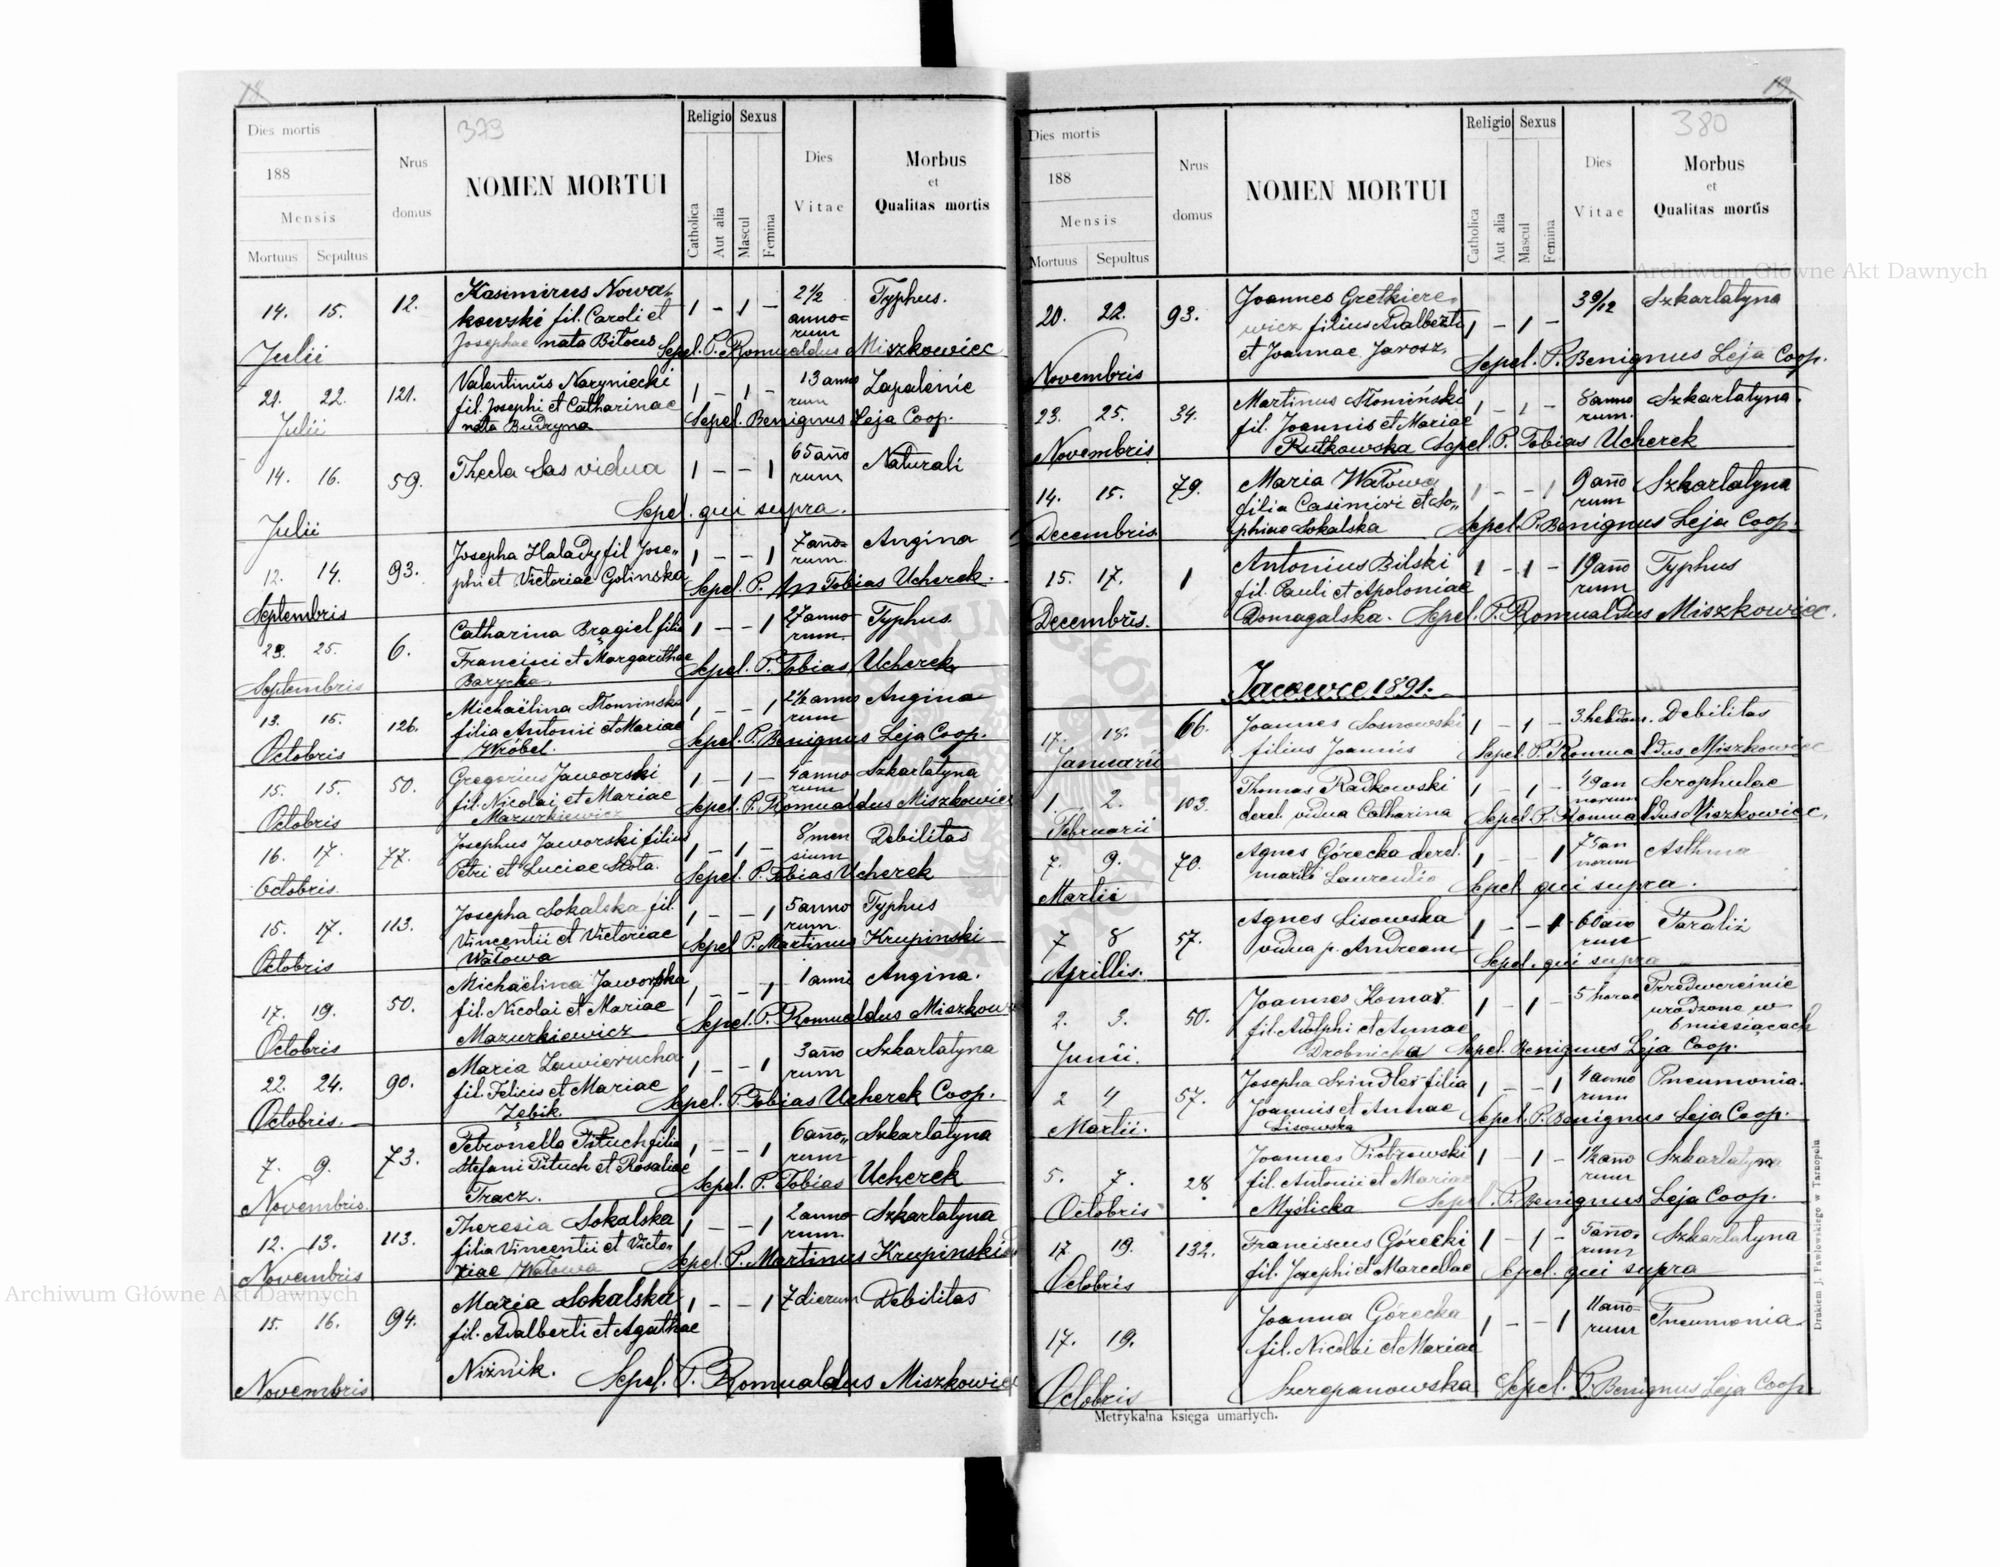 18
379
Dies mortis
188
Mensis
Mortuus Sepultus
Nrus domus
NOMEN MORTUI
Religio
Catholica
Aut alia
Sexus
Mascul
Femina
Dies Vitae
Morbus et Qualitas mortis
14. 15. 12. Kasimirus Nowa- 1 - 1 - 2 1/2 Typhus.
kowski fil. Caroli et anno=
Julii Josephae nata Bitous rum Sepel. P. Romualdus Miszkowiec
21. 22. 121. Valentinus Naryniecki 1 - 1 - 13 anno Zapalenie
fil. Josephi et Catharinae rum
Julii nata Budryna Sepel. Benignus Leja Coop.
14. 16. 59. Thecla Sas vidua 1 - - 1 65 año Naturali
rum
Julii Sepel. qui supra.
12. 14. 93. Josepha Halady fil. Jose„ 1 - - 1 7 año= Angina
phi et Victoriae Golinska rum.
Septembris Sepel. P. Tobias Ucherek.
23. 25. 6. Catharina Brągiel filia 1 - - 1 27 anno Typhus.
Francisci et Margarithae rum.
Septembris Barycka Sepel. P. Tobias Ucherek
13. 15. 126. Michaëlina Słominska 1 - - 1 2 1/2 anno Angina
filia Antonii et Mariae rum
Octobris Wróbel. Sepel. P. Benignus Leja Coop.
15. 15. 50. Gregorius Jaworski 1 - 1 - 4 anno Szkarlatyna
fil. Nicolai et Mariae rum
Octobris Mazurkiewicz Sepel. P. Romualdus Miszkowiec
16. 17. 77. Josephus Jaworski filius 1 - 1 - 8 men Debilitas
Petri et Luciae Słota. sium
Octobris. Sepel. P. Tobias Ucherek
15. 17. 113. Josepha Sokalska fil. 1 - - 1 5 anno Typhus
Vincentii et Victoriae rum.
Octobris Watowa Sepel P. Martinus Krupinski
17. 19. 50. Michaëlina Jaworska 1 - - 1 1 anni Angina.
fil. Nicolai et Mariae
Octobris Mazurkiewicz Sepel. P. Romualdus Miszkow
22. 24. 90. Maria Zawierucha 1 - - 1 3 año Szkarlatyna
fil. Felicis et Mariae rum
Octobris. Zębik. Sepel. P. Tobias Ucherek Coop.
7. 9. 73. Petronella Pituch filia 1 - - 1 6 año„ Szkarlatyna
Stefani Pituch et Rosaliae rum
Novembris. Tracz. Sepel. P. Tobias Ucherek
12. 13. 113. Theresia Sokalska 1 - - 1 2 anno Szkarlatyna
filia Vincentii et Victo- rum.
Novembris riae Watowa Sepel. P. Martinus Krupinski
15. 16. 94. Maria Sokalska 1 - - 1 7 dierum Debilitas
fil. Adalberti et Agathae
Novembris Niźnik. Sepel. P. Romualdus Miszkowiec
19.
380
Dies mortis
188
Mensis
Mortuus Sepultus
Nrus domus
NOMEN MORTUI
Religio
Catholica
Aut alia
Sexus
Mascul
Femina
Dies Vitae
Morbus et Qualitas mortis
20. 22. 93. Joannes Gretkiere- 3 9/12 Szkarlatyna
wicz filius Adalberti 1 - 1 -
Novembris et Joannae Jarosz. Sepel. P. Benignus Leja Coop.
23. 25. 34. Martinus Słomiński 1 - 1 - 8 anno Szkarlatyna.
fil. Joannis et Mariae rum.
Novembris Rutkowska Sepel. P. Tobias Ucherek
14. 15. 79. Maria Watowa 1 - - 1 9 año Szkarlatyna
filia Casimiri et So„ rum
Decembris phiae Sokalska Sepel. P. Benignus Leja Coop.
15. 17. 1 Antonius Bilski 1 - 1 - 19 año Typhus
fil. Pauli et Apoloniae rum
Decembris. Domagalska. Sepel. P. Romualdus Miszkowiec.
Jacowce 1891.
17. 18. 66. Joannes Sosnowski 1 - 1 - 3. hebdom. Debilitas
Januarii filius Joannis Sepel. P. Romualdus Miszkowiec
1. 2. 103. Thomas Radkowski 1 - 1 - 49 an Scrophulae
norum
Februarii derel. vidua Catharina Sepel P. Romualdus Miszkowiec.
7. 9. 70. Agnes Górecka derel. 1 - - 1 75 an Asthma
norum
Martii marito Laurentio Sepel qui supra.
7 8 57. Agnes Lisowska 1 - - 1 60 ano Paraliż
vidua p. Andream rum
Aprillis. Sepel. qui supra
2. 3. 50. Joannes Komar 1 - 1 - 5 horae Przedwcreśnie
fil. Adolphi et Annae urodzone w
6 miesiącach
Junii. Drobnicka Sepel. Benignus Leja Coop.
2 4 57. Josepha Szindler filia 1 - - 1 4 anno Pneumonia.
Joannis et Annae rum
Martii. Lisowska Sepel. P. Benignus Leja Coop.
5. 7. 28. Joannes Piotrowski 1 - 1 - 1 1/2 año Szkarlatyna
fil. Antonii et Mariae rum
Octobris Myślicka Sepel. P. Benignus Leja Coop.
17. 19. 132. Franciscus Górecki 1 - 1 - 5 año- Szkarlatyna
rum
Octobris fil. Josephi et Marcellae Sepel. qui supra
17. 19. Joanna Górecka 1 - - 1 11 año- Pneumonia.
fil. Nicolai et Mariae rum
Octobris Szczepanowska Sepel. P. Benignus Leja Coop.
Metrykalna księga umarłych.
Drukiem J. Pawłowskiego w Tarnopolu
Archiwum Główne Akt Dawnych
Archiwum Główne Akt Dawnych